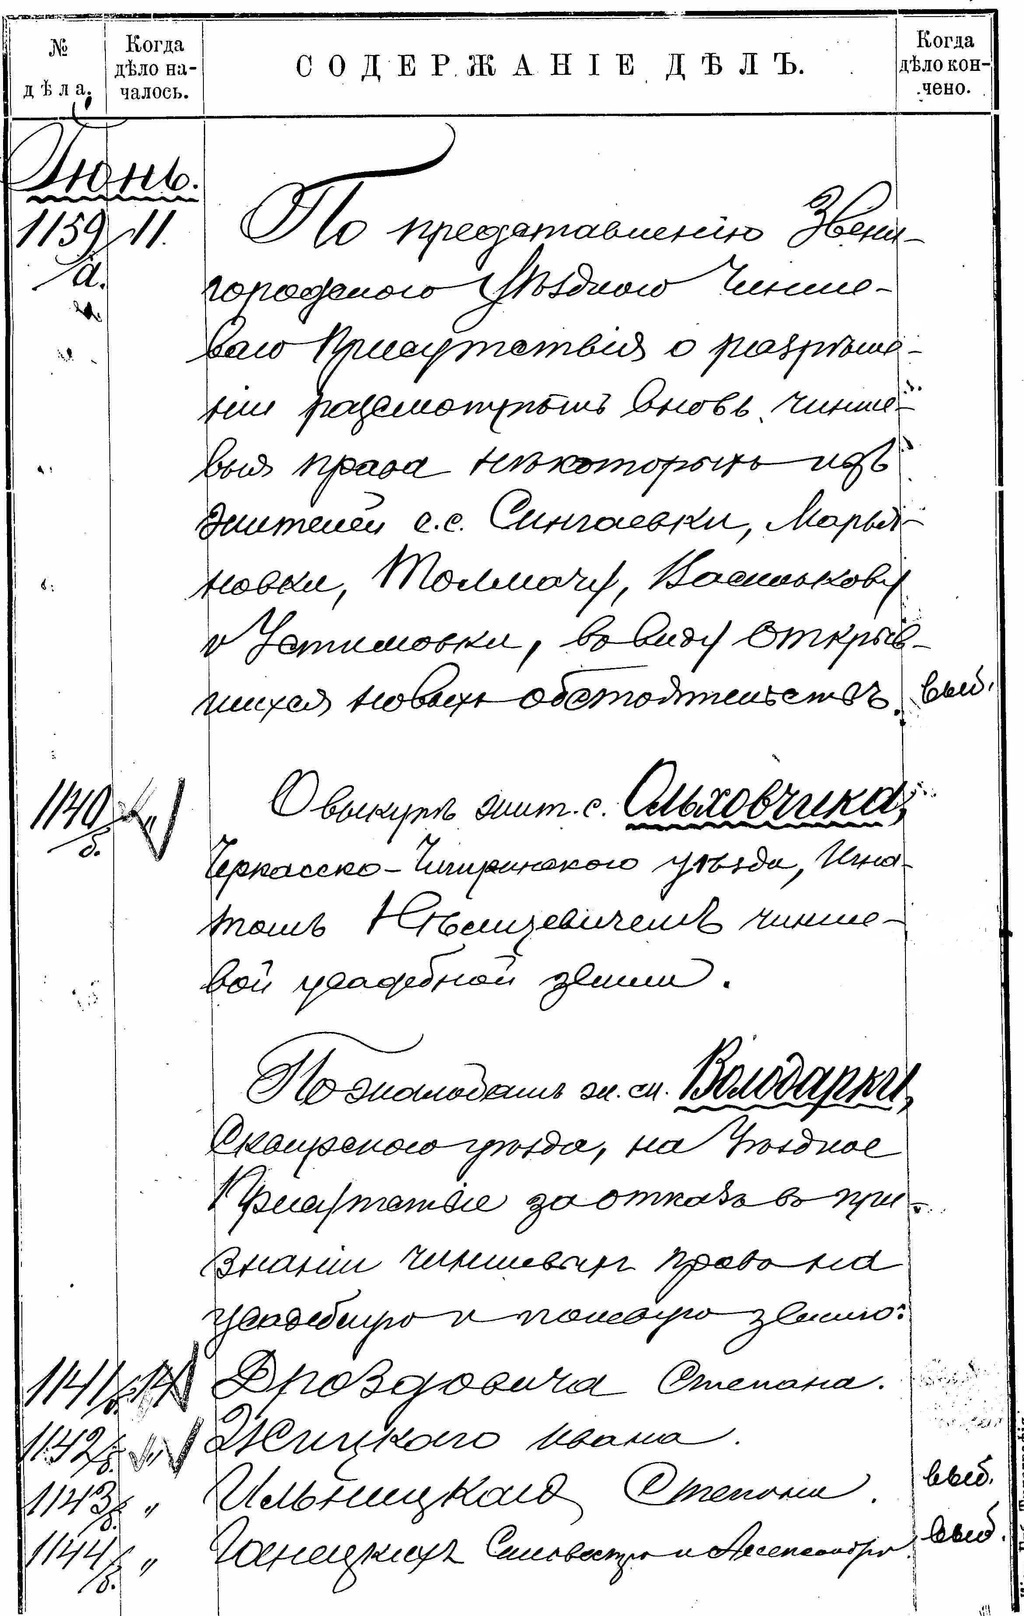 № дѣла.
Когда дѣло началось.
СОДЕРЖАНІЕ ДѢЛЪ.
Когда дѣло кончено.
Іюнь.
1159/а. 11. По представленію Звени-
городскаго Уѣзднаго Чинше-
ваго Присутствія о разрѣше-
ніи разсмотрѣть вновь чинше-
выя права нѣкоторыхъ изъ
жителей с.с. Сингаевки, Марья-
новки, Толмачу, Василькову
и Устимовки, въ виду открыв-
шихся новыхъ обстоятельствъ. выб.
1140/б. " О выкупѣ жит. с. Ольховчика,
Черкасско-Чигиринскаго уѣзда, Игна-
томъ Нѣмцевичемъ чинше-
вой усадебной земли.
По жалобамъ ж. м. Володарки,
Сквирскаго уѣзда, на Уѣздное
Присутствіе за отказъ въ при-
знаніи чиншевыхъ правъ на
усадебную и полевую землю:
1141/б. 14 Дроздовича Степана.
1142/б. " Жицкаго Ивана.
1143/б. " Ильницкаго Степана. выб.
1144/б. " Ганецкихъ Сильвестра и Александра. выб.